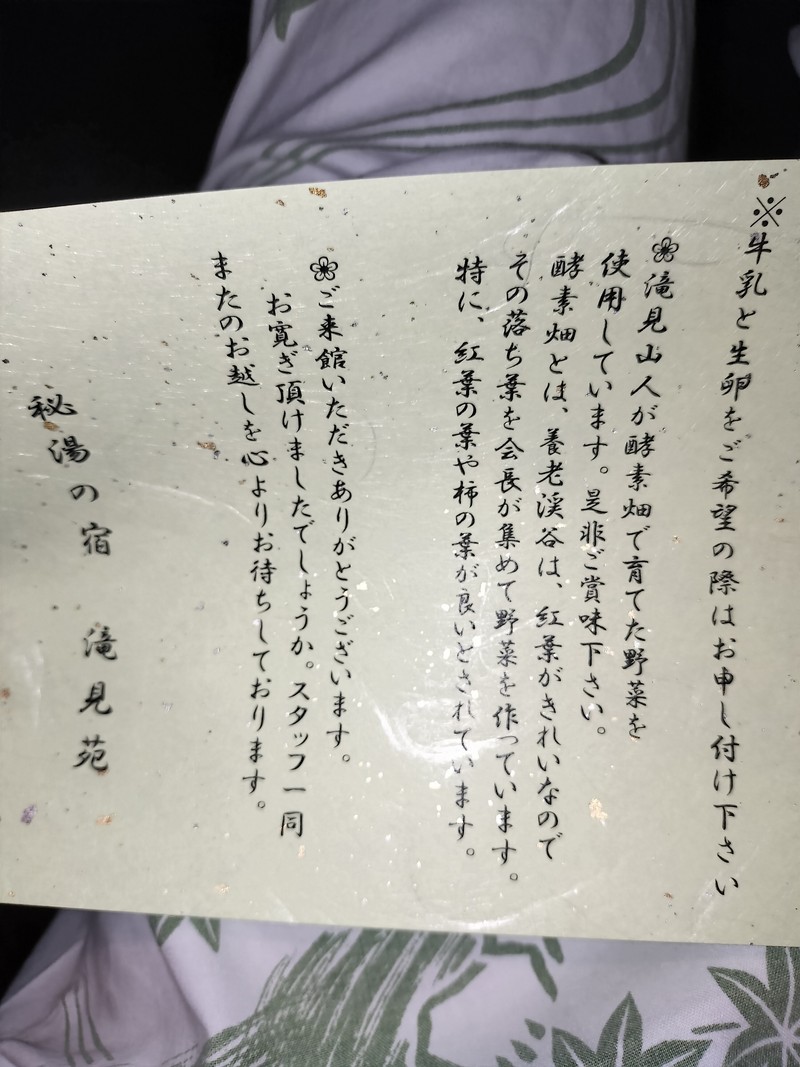 ※牛乳と生卵をご希望の際はお申し付け下さい
滝見山人が酵素畑で育てた野菜を
使用しています。是非ご賞味下さい。
酵素畑とは、養老渓谷は、紅葉がきれいなので
その落ち葉を会長が集めて野菜を作っています。
特に、紅葉の葉や柿の葉が良いとされています。
ご来館いただきありがとうございます。
お寛ぎ頂けましたでしょうか。スタッフ一同
またのお越しを心よりお待ちしております。
秘湯の宿 滝見苑